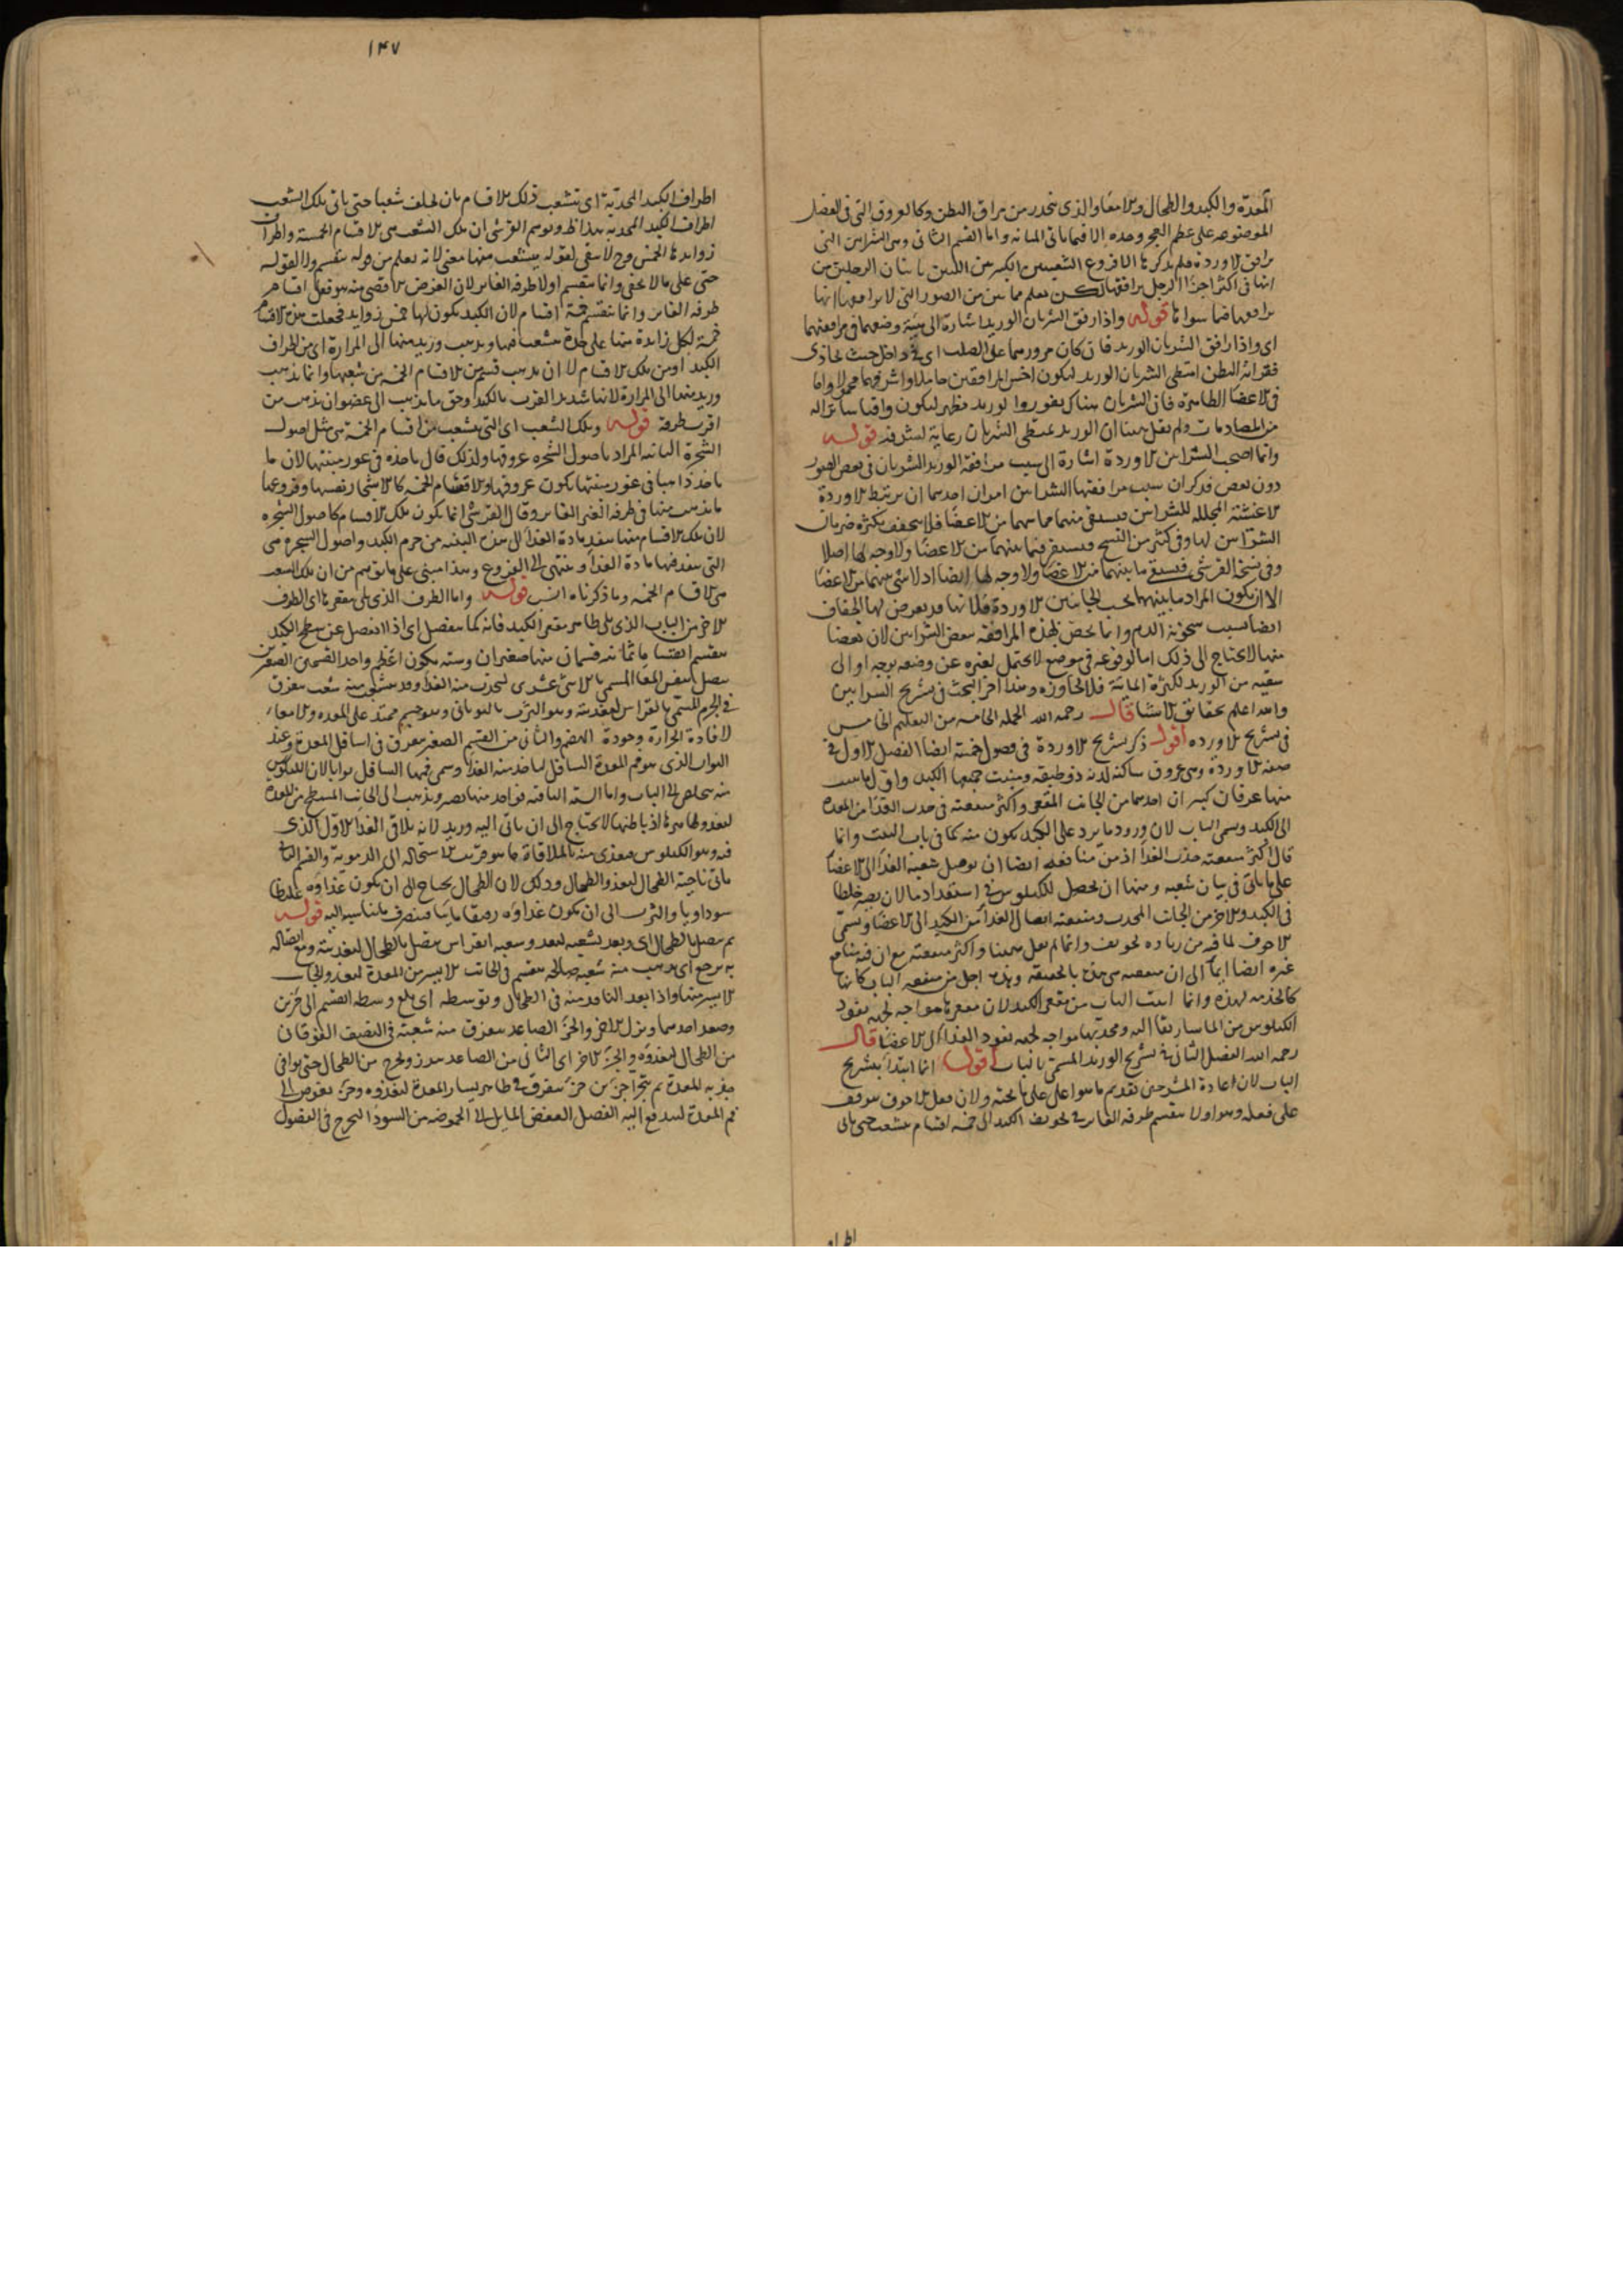 المعدة والكبد والطحال والامعا والذى ينحدر من مراق البطن وكالعروق التى فى العضل
الموضوعه على عظم العجز وحده الا فيما ياتى المثانه واما القسم الثانى وهى الشرايين التى
ترافق الاوردة فلم يذكرها الا فروع الشعبتين الكبيرتين اللتين ياتيان الرجلين من
انها فى اكثر اجزا الرجل يرافقها لكن يعلم مما بين من الصور التى لا يرافقها انها
يرافقها فيما سواها قوله واذا رافق الشريان الوريد اشارة الى هيئة وضعهما فى مرافقتهما
اى واذا رافق الشريان الوريد فان كان مرورهما على الصلب اى فى داخل حيث يحاذى
فقراته البطن امتطى الشريان الوريد ليكون اخس المرافقين حاملا واشرفهما محمولا واما
فى الاعضا الظاهرة فان الشريان هناك يغور والوريد يظهر ليكون واقيا ساترا له
من المصادمات ولم يقل هنا ان الوريد يمتطى الشريان رعاية لشرفه قوله
وانما اصحب الشرايين الاوردة اشارة الى سبب مرافقة الوريد الشريان فى بعض الصور
دون بعض فذكر ان سبب مرافقتها الشرايين امران احدهما ان يرتبط الاوردة
الاغشية المجلله للشرايين فيستقى منهما مما بينهما من الاعضا فلا يسخف بكثرة ضربان
الشرايين لها وفى كثير من النسخ فيستقى فيما بينهما من الاعضا ولا وجه لها اصلا
وفى نسخة القرشى فيستقى ما بينهما من الاعضا ولا وجه لها ايضا اذ لا شى بينهما من الاعضا
الا ان يكون المراد ما بينهما بحسب الجانبين الاوردة فلانها قد يعرض لها الجفاف
ايضا بسبب سخونة الدم وانما يخص بهذه المرافقة بعض الشرايين لان بعضا
منها لا يحتاج الى ذلك اما لوقوعه فى موضع لا يحتمل لغيره عن وضعه بوجه او الى
سقيه من الوريد لكثرة المائية فلا يجاوزه وهذا اخر البحث فى تشريح الشرايين
والله اعلم بحقائق الاشيا قال رحمه الله الجملة الخامسه من التعليم الخامس
فى تشريح الاورده اقول ذكر تشريح الاوردة فى فصول خمسة ايضا الفصل الاول فى
صفة الاوردة وهى عروق ساكنة لدنه ذو طبقه ومنبت جميعها الكبد واول ما ينبت
منها عرقان كبيران احدهما من الجانب المقعر واكثر منفعته فى جذب الغذا من المعدة
الى الكبد ويسمى الباب لان ورود ما يرد على الكبد يكون منه كما فى باب البيت وانما
قال اكثر منفعته جذب الغذا اذ من منافعه ايضا ان يوصل شعبه الغذا الى الاعضا
على ما ياتى فى بيان شعبه ومنها ان يحصل للكيلوس فى استعداد ما لان يصير خلطا
فى الكبد والاخر من الجانب المحدب ومنفعته ايصال الغذا من الكبد الى الاعضا ويسمى
الاجوف لما فيه من زيادة تجويف وانما لم يقل ههنا واكثر منفعته مع ان فيه منافع
غيره ايضا ايما الى ان منفعته هى هذه بالحقيقه وهذه اجل من منفعه الباب كانها
كالخدمه لهذه وانما انبت الباب من مقعر الكبد لان مقعرها مواجه لجهة نفوذ
الكيلوس من الماساريقا اليه ومحدبها مواجه لجهه نفوذ الغذا الى الاعضا قال
رحمه الله الفصل الثانى فى تشريح الوريد المسمى بالباب اقول انما ابتدأ بتشريح
الباب لان عادة المشرحين تقديم ما هو اعلى على ما تحته ولان فعل الاجوف موقف
على فعله وهو اولا ينقسم طرفه الغاير فى تجويف الكبد الى خمسة اقسام ينشعب حتى ياتى
اطراف
١٤٧
اطراف الكبد المحدبة اى تتشعب تلك الاقسام بان يخلف شعبا حتى ياتى تلك الشعب
اطراف الكبد المحدبه هذا ظ وتوهم القرشى ان تلك الشعب هى الاقسام الخمسة واطراف
زوايدها الخمس وح لا يبقى لقوله يتشعب منها معنى لانه يعلم من قوله ينقسم ولا لقوله
حتى على ما لا يخفى وانما ينقسم اولا طرفه الغاير لان الغرض الاقصى منه هو فعل اقسام
طرفه الغاير وانما ينقسم خمسة اقسام لان الكبد يكون لها خمس زوايد فجعلت هذه الاقسام
خمسة لكل زايدة منها على حدة يتشعب فيها ويذهب وريد منها الى المرارة اى من اطراف
الكبد او من تلك الاقسام لا ان يذهب قسم من الاقسام الخمسة من شعبها وانما يذهب
وريد منها الى المرارة لانها شديد القرب بالكبد وحق ما يذهب الى عضو ان يذهب من
اقرب طرفه قوله وتلك الشعب اى التى يتشعب من اقسام الخمسة هى مثل اصول
الشجرة النابته المراد باصول الشجرة عروقها ولذلك قال ياخذه فى غور منبتها لان ما
ياخذ ذاهبا فى غور منبتها يكون عروقها والاقسام الخمسه كالاشجار نفسها وفروعها
ما يذهب منها فى طرفه الغير الغاير وقال القرشى انما يكون تلك الاقسام كاصول الشجره
لان تلك الاقسام منها ينفذ مادة الغذا الى هذه البقية من جرم الكبد واصول الشجرة هى
التى ينفذ فيها مادة الغذا وينتهى الى الفروع وهذا مبنى على ما توهم من ان تلك الشعب
هى الاقسام الخمسه وما ذكرناه انسب قوله واما الطرف الذى يلى مقعرها اى الطرف
الاخر من الباب الذى يلى ظاهر مقعر الكبد فانه كما ينفصل اى اذا انفصل عن سطح الكبد
ينقسم اقساما ثمانيه قسمان منها صغيران وسته يكون اعظم واحد القسمين الصغيرين
يتصل بنفس المعا المسمى بالاثنى عشرى ليجذب منه الغذا وقد ينشعب منه شعب يتفرق
فى الجرم المسمى بانقراس لتغذيته وهو الثرب باليونانى وهو جسم ممتد على المعدة والامعاء
لافادة الحرارة وجودة الهضم والثانى من القسم الصغير يتفرق فى اسافل المعدة وعند
البواب الذى هو فم المعدة السافل لياخذ منه الغذا وسمى فمها السافل بوابا لان الكيلوس
منه يتخلص الى الباب واما السته الباقيه فواحد منها يصير ويذهب الى الجانب المسطح من المعدة
ليغذو ظاهرها اذ باطنها لا يحتاج الى ان ياتى اليه وريد لانه يلاقى الغذا الاول الذى
فيه وهو الكيلوس فيغذى منه بالملاقاة ما هو قريب الاستحاله الى الدموية والقسم الثانى
ياتى ناحية الطحال ليغذو الطحال وذلك لان الطحال يحتاج الى ان يكون غذاؤه غليظا
سوداويا والثرب الى ان يكون غذاؤه رقيقا مائيا فينصرف ما يناسبه اليه قوله
ثم يتصل بالطحال اى وبعد تشعبه ليغذو شعبه انقراس يتصل بالطحال لتغذيته ومع اتصاله
به يرجع اى يذهب منه شعبه صالحه ينقسم فى الجانب الايسر من المعدة ليغذو الجانب
الايسر منها واذا بعد النافذ منه فى الطحال وتوسطه اى بلغ وسطه انقسم الى جزئين
وصعد احدهما ونزل الاخر والجزء الصاعد يتفرق منه شعبة فى النصف الفوقانى
من الطحال ليغذوه والجزء الاخر اى الثانى من الصاعد يبرز ويخرج من الطحال حتى يوافى
حدبة المعدة ثم يتجزا جزءين جزء يتفرق فى ظاهر يسار المعدة ليغذوه وجزء يغوص الى
فم المعدة ليندفع اليه الفضل العفص المايل الى الحموضه من السودا ليخرج فى الفضول